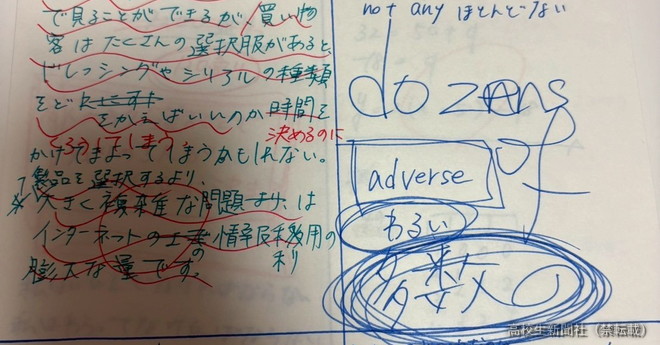 で見ることができるが、買い物
客はたくさんの選択服があると、
ドレッシングやシリアルの種類
をど
をかえばいいのか時間を
決めるのに
かけてまよってしまうかもしれない。
製品を選択するより、
※大きく複雑な問題は
インターネットの 情報利用の
膨大な量です。
not any ほとんどない
dozens
adverse
わるい
多数の
高校生新聞社（禁転載）